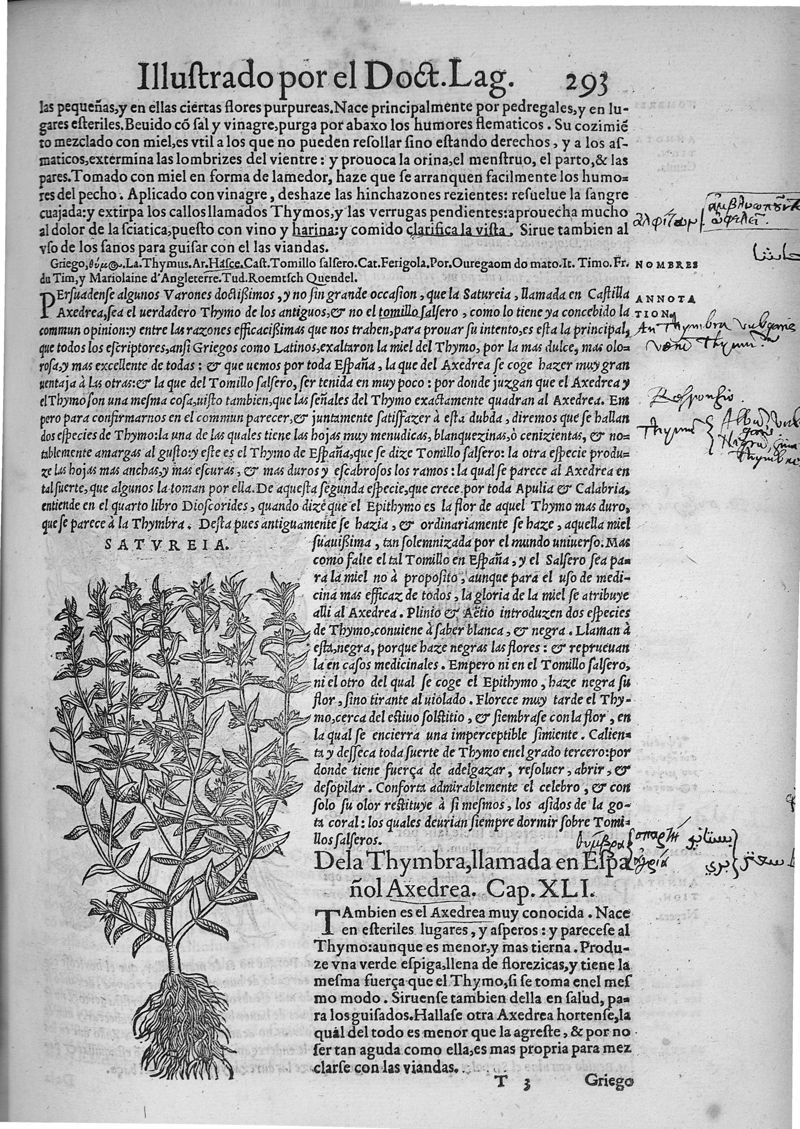 Illustrado por el Doct.Lag. 293
las pequeñas,y en ellas ciertas flores purpureas.Nace principalmente por pedregales,y en lu-
gares esteriles.Beuido cõ sal y vinagre,purga por abaxo los humores flematicos. Su cozimiẽ
to mezclado con miel,es vtil a los que no pueden resollar sino estando derechos, y a los as-
maticos,extermina las lombrizes del vientre: y prouoca la orina,el menstruo, el parto,& las
pares.Tomado con miel en forma de lamedor, haze que se arranquen facilmente los humo-
res del pecho. Aplicado con vinagre, deshaze las hinchazones rezientes: resuelue la sangre
cuajada:y extirpa los callos llamados Thymos,y las verrugas pendientes:aprouecha mucho
al dolor de la sciatica,puesto con vino y harina:y comido clarifica la vista. Sirue tambien al
vso de los sanos para guisar con el las viandas.
Griego,θυμ@.La.Thymus.Ar.Hasce.Cast.Tomillo salsero.Cat.Ferigola.Por.Ouregaom do mato.It. Timo.Fr.
NOMBRES
du Tim,y Mariolaine d'Angleterre.Tud.Roemtsch Quendel.
PErsuadense algunos Varones doctißimos,y no sin grande occasion, que la Satureia, llamada en Castilla
ANNOTA
Axedrea,sea el uerdadero Thymo de los antiguos,& no el tomillo salsero, como lo tiene ya concebido la
TION.
commun opinion:y entre las razones efficacißimas que nos trahen,para prouar su intento,es esta la principal,
An Thymbra vulgaris
que todos los escriptores,ansi Griegos como Latinos,exaltaron la miel del Thymo, por la mas dulce, mas olo-
rosa,y mas excellente de todas: & que uemos por toda España, la que del Axedrea se coge hazer muy gran
uentaja à las otras:& la que del Tomillo salsero, ser tenida en muy poco: por donde juzgan que el Axedrea y
el Thymo son una mesma cosa,uisto tambien,que las señales del Thymo exactamente quadran al Axedrea. Em
Responsio.
pero para confirmarnos en el commun parecer,& juntamente satisfazer à esta dubda, diremos que se hallan
dos especies de Thymo:la una de las quales tiene las hojas muy menudicas, blanquezinas,ò cenizientas, & no-
tablemente amargas al gusto:y este es el Thymo de España,que se dize Tomillo salsero: la otra especie produ-
ze las hojas mas anchas,y mas escuras, & mas duros y escabrosos los ramos: la qual se parece al Axedrea en
tal suerte, que algunos la toman por ella.De aquesta segunda especie,que crece por toda Apulia & Calabria,
entiende en el quarto libro Dioscorides, quando dizẽ que el Epithymo es la flor de aquel Thymo mas duro,
que se parece à la Thymbra. Desta pues antiguamente se hazia, & ordinariamente se haze, aquella miel
SATVREIA.
suauißima, tan solemnizada por el mundo uniuerso.Mas
como falte el tal Tomillo en España, y el Salsero sea pa-
ra la miel no à proposito, aunque para el uso de medi-
cina mas efficaz de todos, la gloria de la miel se atribuye
alli al Axedrea. Plinio & Aëtio introduzen dos especies
de Thymo,conuiene à saber blanca, & negra. Llaman à
esta,negra, porque haze negras las flores: & reprueuan
la en casos medicinales. Empero ni en el Tomillo salsero,
ni el otro del qual se coge el Epithymo, haze negra su
flor, sino tirante al uiolado. Florece muy tarde el Thy-
mo,cerca del estiuo solstitio, & siembrase con la flor, en
la qual se encierra una imperceptible simiente. Calien-
ta y desseca toda suerte de Thymo enel grado tercero:por
donde tiene fuerça de adelgazar, resoluer, abrir, &
desopilar. Conforta admirablemente el celebro, & con
solo su olor restituye à si mesmos, los asidos de la go-
ta coral: los quales deurian siempre dormir sobre Tomi-
llos salseros.
De la Thymbra,llamada en Espa
ñol Axedrea. Cap.XLI.
TAmbien es el Axedrea muy conocida. Nace
en esteriles lugares, y asperos: y parecese al
Thymo:aunque es menor,y mas tierna. Produ-
ze vna verde espiga,llena de florezicas,y tiene la
mesma fuerça que el Thymo,si se toma enel mes
mo modo. Siruense tambien della en salud, pa-
ra los guisados.Hallase otra Axedrea hortense,la
qual del todo es menor que la agreste, & por no
ser tan aguda como ella,es mas propria para mez
clarse con las viandas.
T 3 Griego